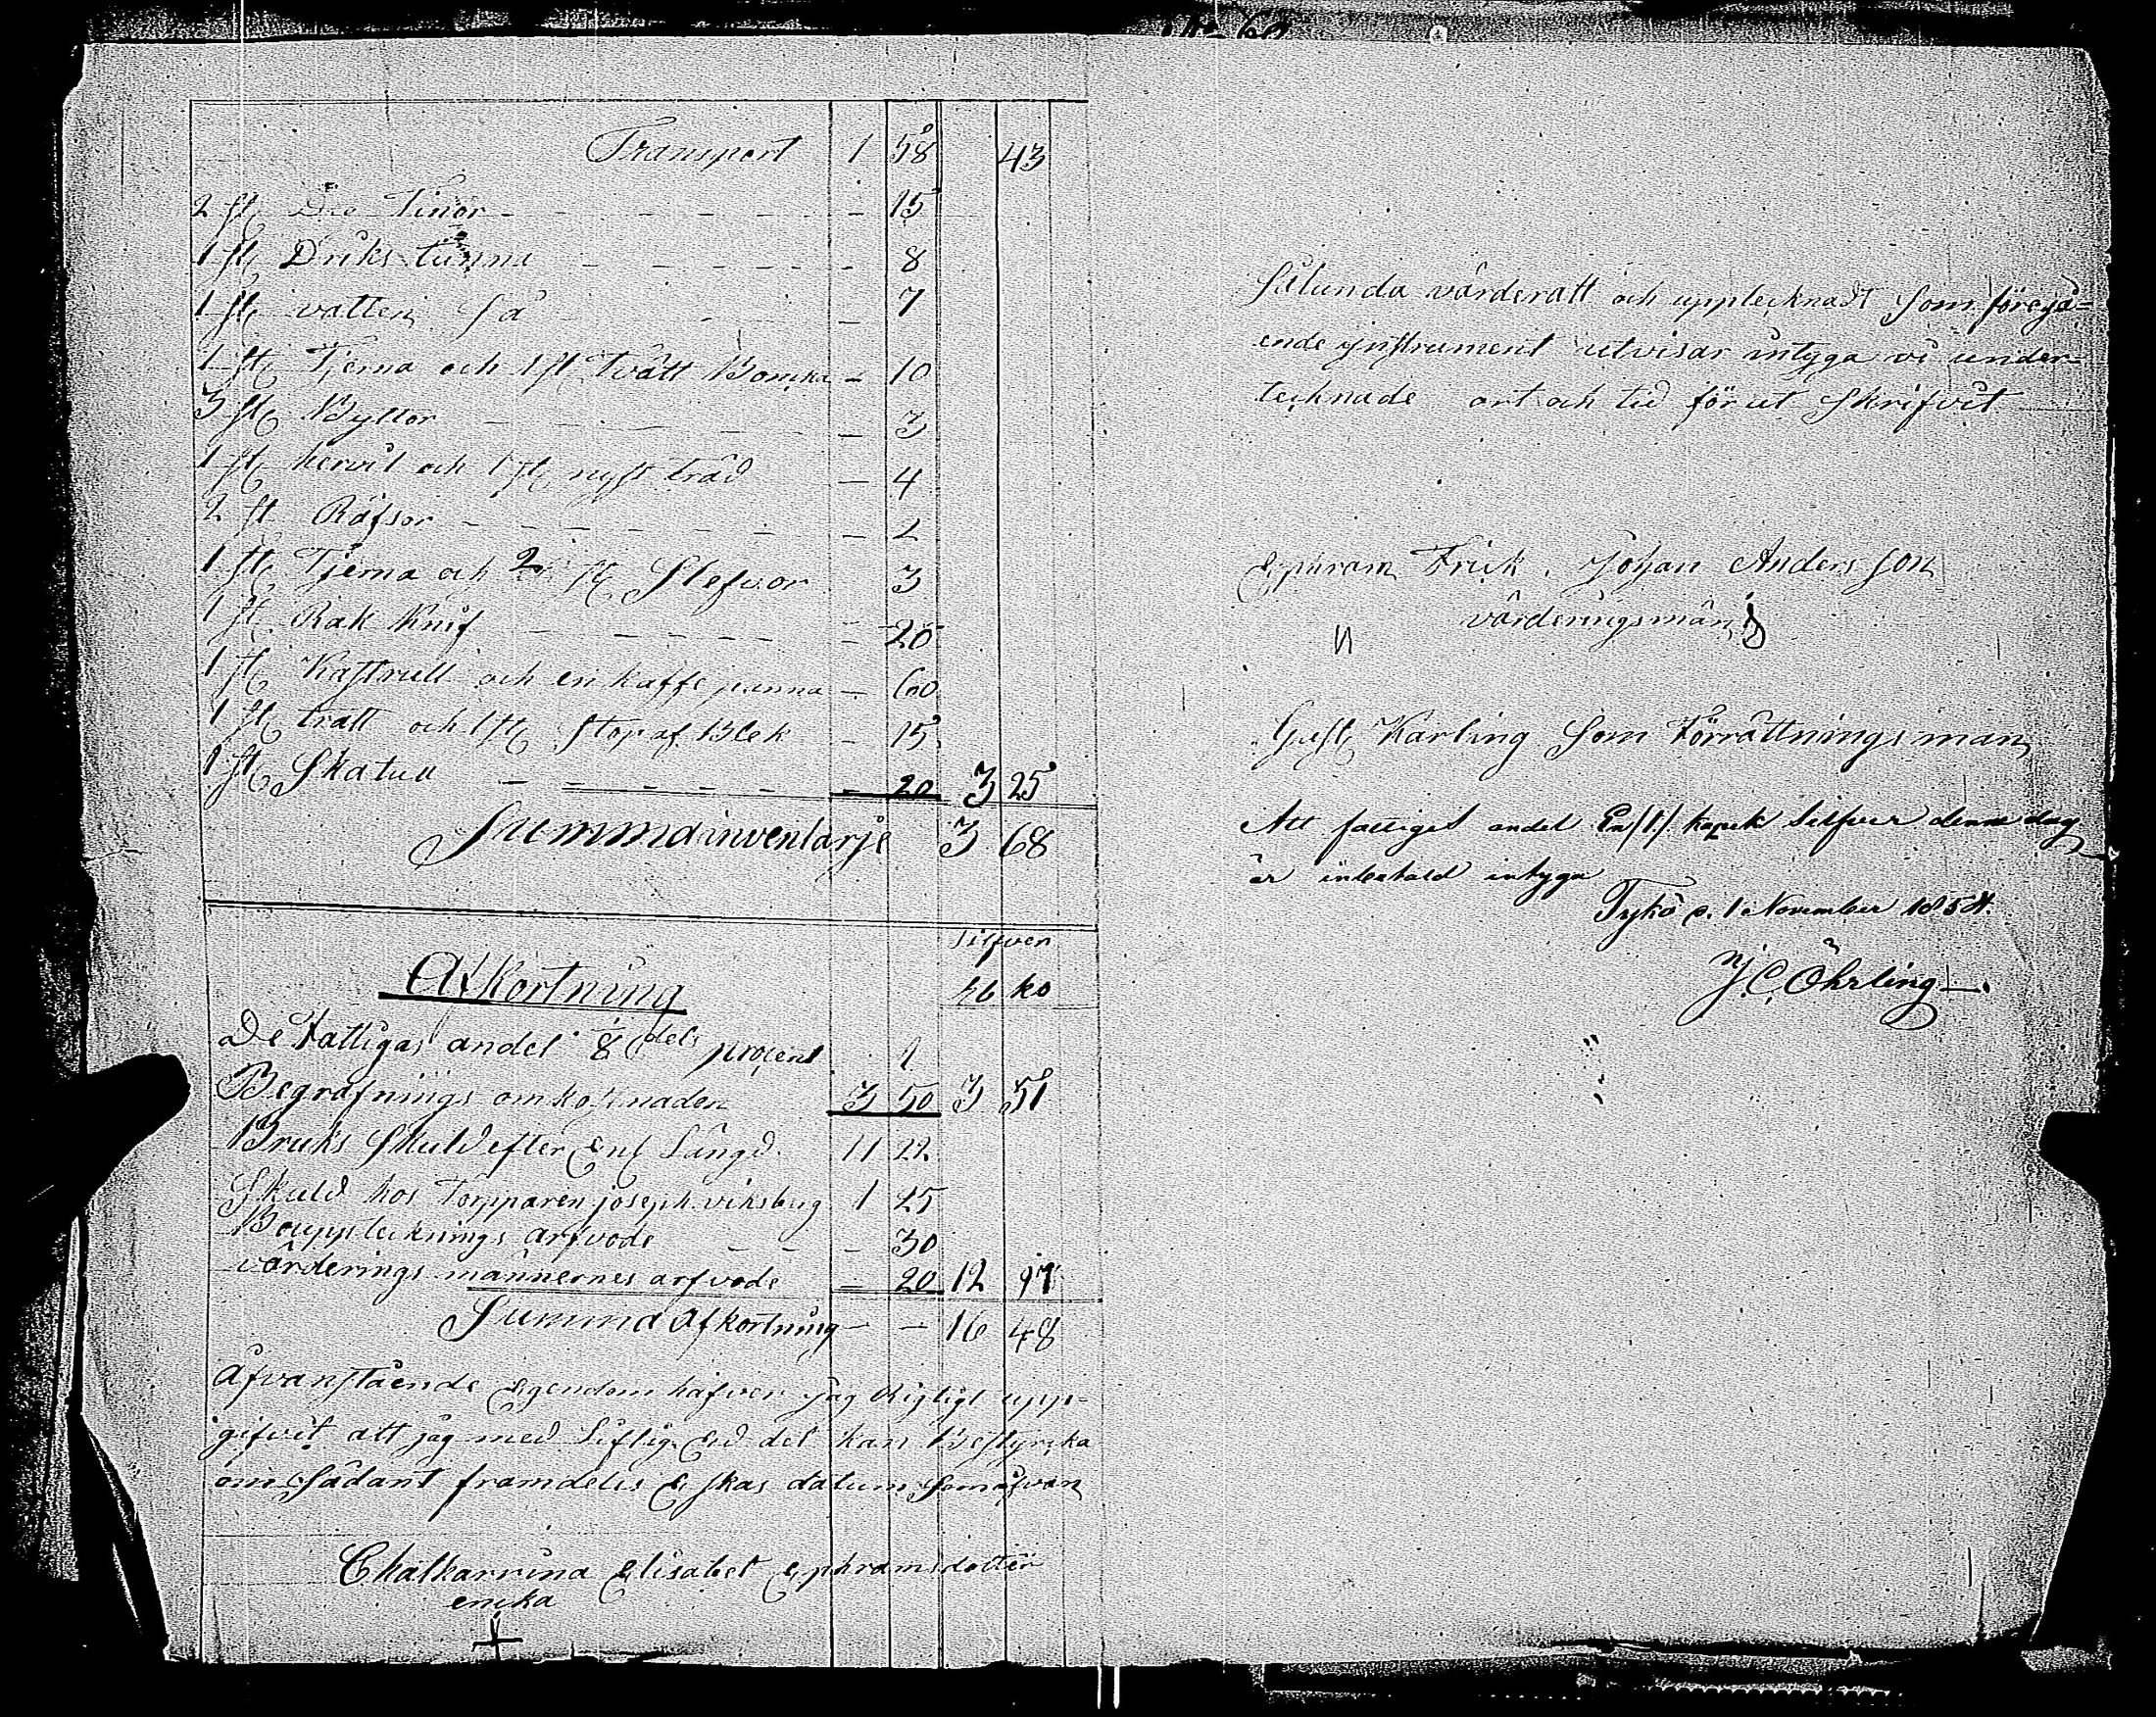 Transport 1 58 43
2 st Dio Tinor - 15
1 st Driks tunna - 8
1 st vatten Så - 7
1 st Tjerna och 1 st Tvätt Bomka - 10
3 st Byttor - 3
1 st och 1 st nyst tråd - 4
2 st Räfsor - 2
1 st Tjerna och 2 st Slefvor 3
1 st Rak Knif - 20
1 st Kastrull och en kaffe panna - 60
1 st tratt och 1 st Stop af Blek - 15
1 st Skatull - 20 3 25
Summa inventarje 3 68
Silfver
Afkortning ko
De Fattigas andel 1/8 dels procent 1
Begrafnings omkostnaden 3 50 3 51
Bruks Skuld efter Enl Längd 11 22
Skuld hos Torpparen joseph viksbug 1 25
Bouppteknings arfvode - 30
värderings männernes arfvode - 20 12 97
Summa Afkortning - - 16 48
Åfvanstående Egendom häfver jag Rigtigt upp-
gifvit att jag med Liflig Ed det kan Bestyrka
om Sådant framdeles Eskas datum Som åfvan
Chatkarrina Elisabet Ephramsdotter
encka
+
Sålunda värderatt och upptecknadt Som föregå-
ende ynstrument utvisar intyga vi under-
tecknade ort och tid förut Skrifvit
Ephram Frick. Johan Andersson
värderingsmän
Gust Karling Som Förrättningsman
Att fattiges andel En /1/ kopek Silfver denne dag
är inlevererad intyga
Tykö d. 1 November 1854.
J. C. Öhrling